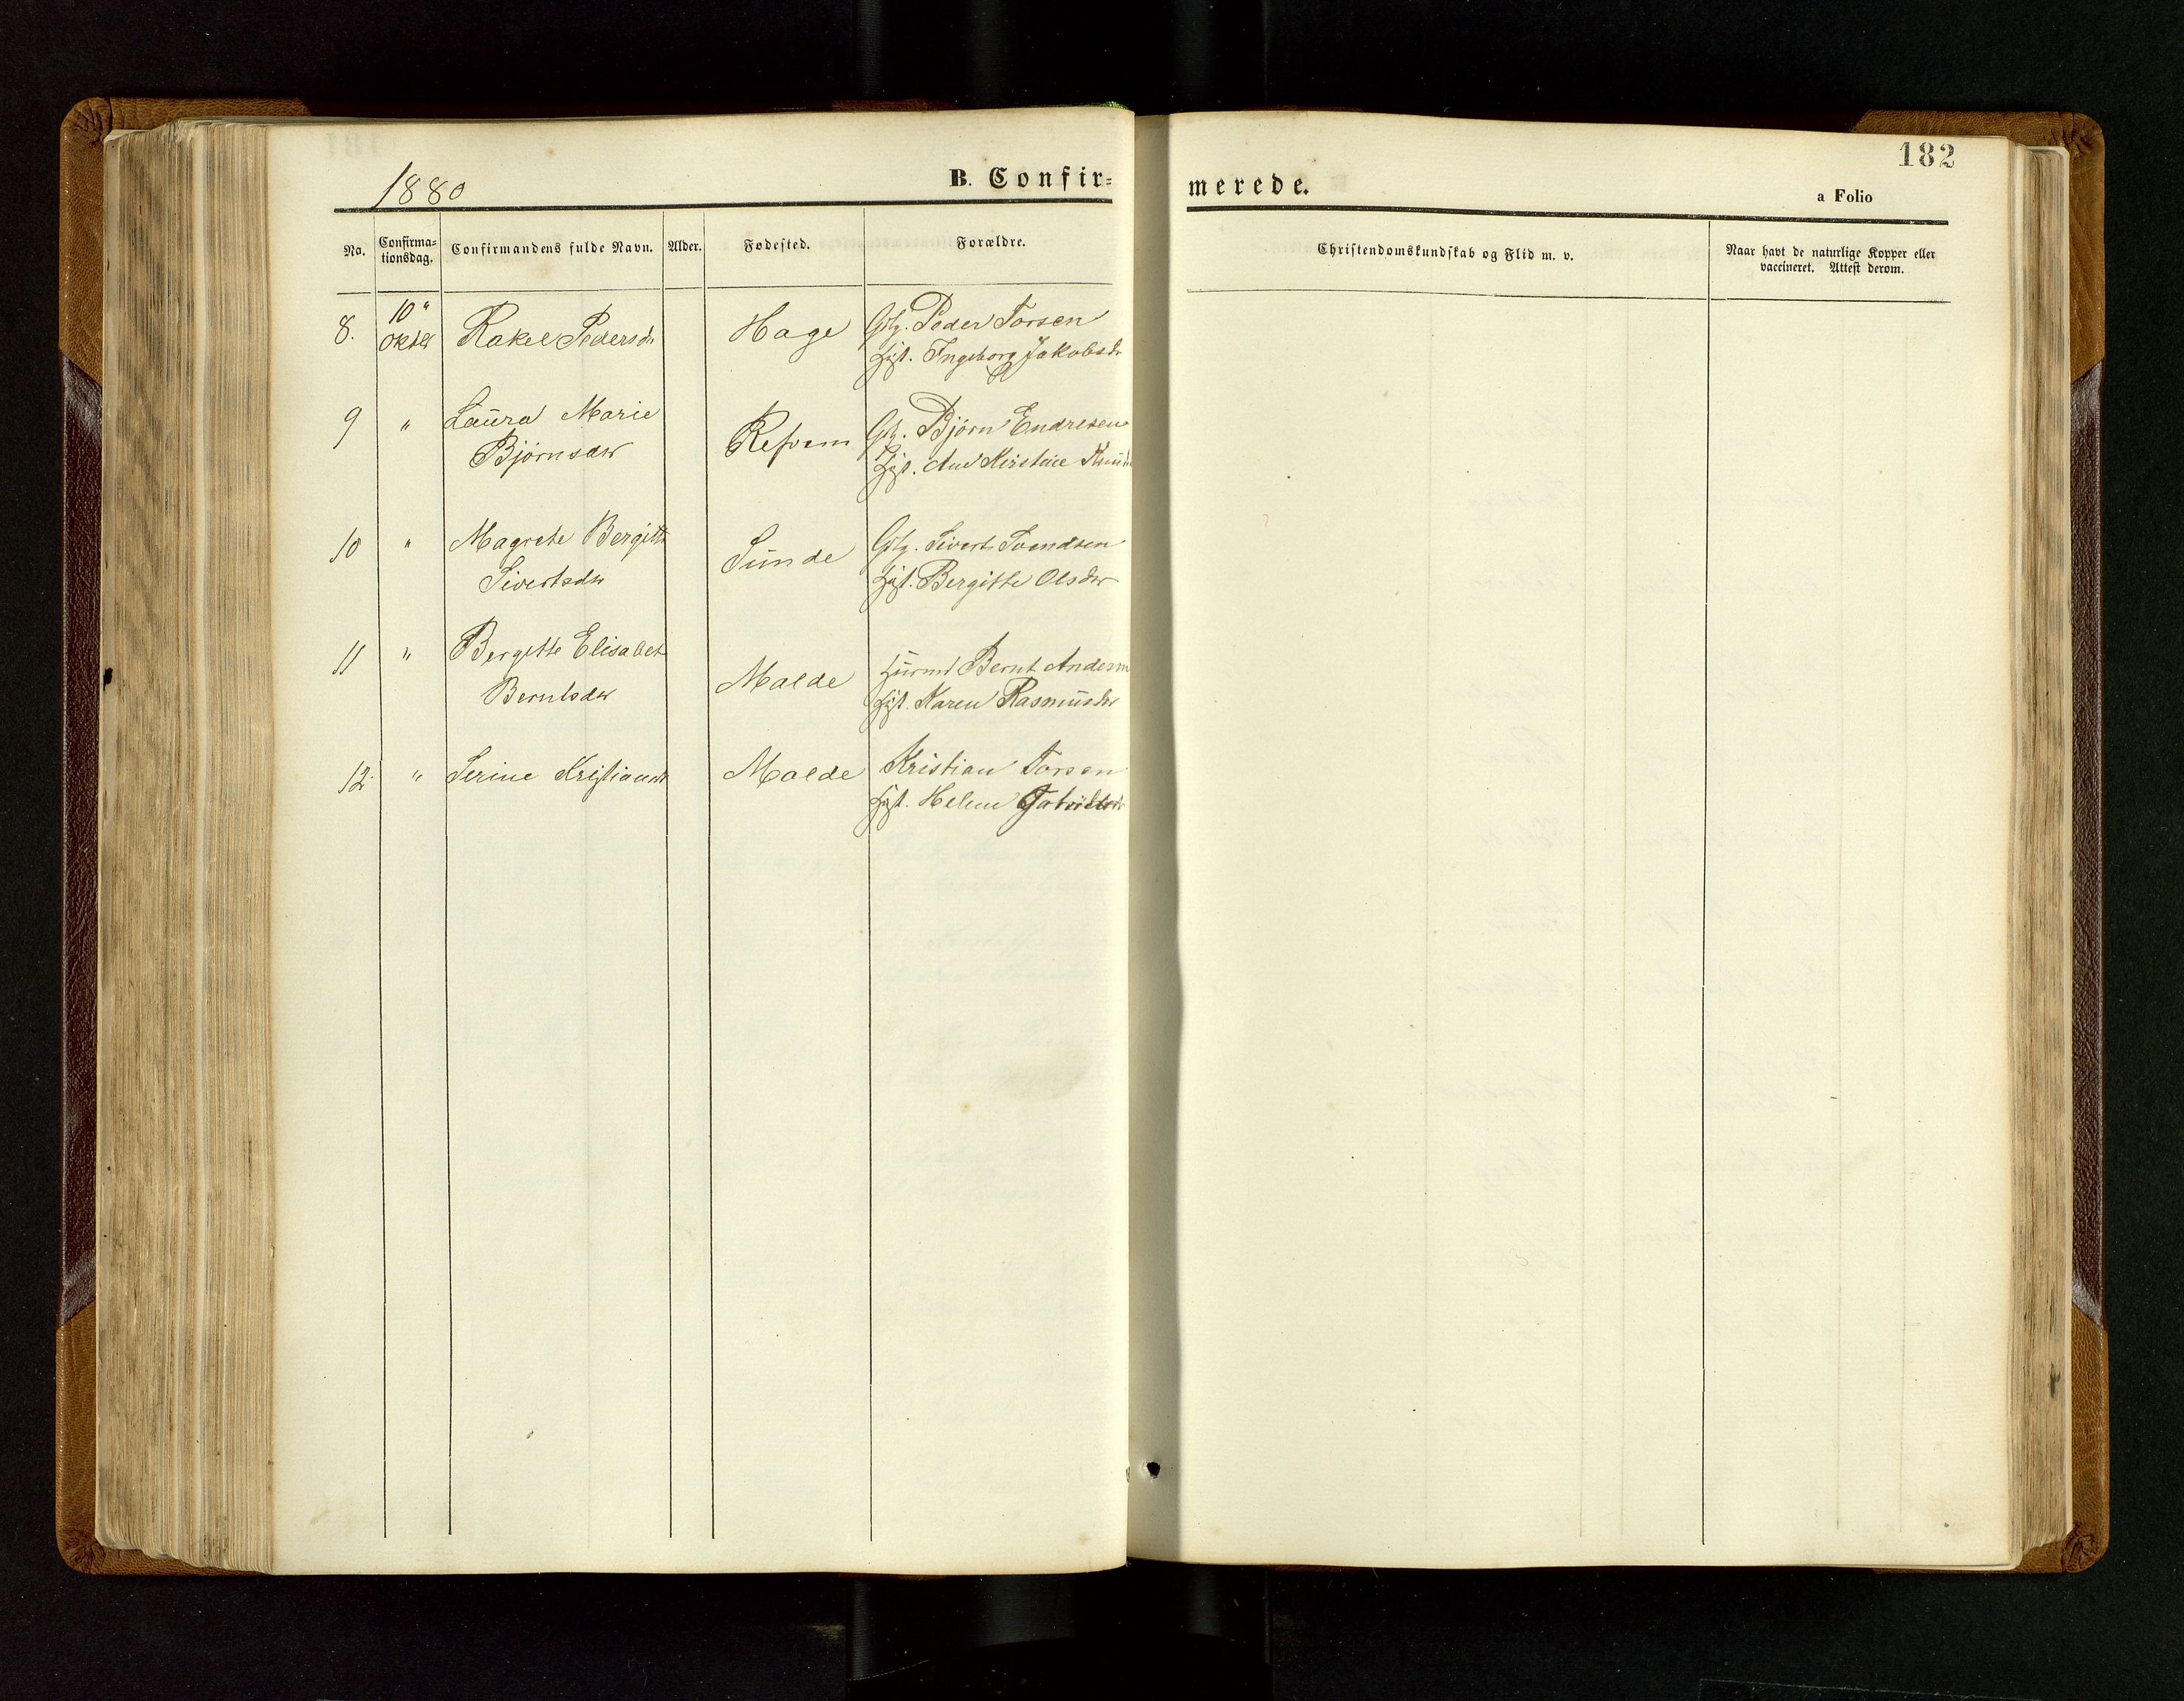 182
1880
B. Confir=
merede.
a Folio
No.
Confirma=
tionsdag.
Confirmandens fulde Navn.
Alder.
Fødested.
Forældre.
Christendomskundskab og Flid m. v.
Naar havt de naturlige Kopper eller
vaccineret. Attest derom.
8. 10" Oktbr Rakel Pedersdr Hage Gbg. Peder Torsen
Hust. Ingeborg Jakobsdr
9 " Laura Marie Gbg. Bjørn Endresen
Bjørnsdtr Refrem Hust. Ane Kirstine
10 " Magrete Bergitte Sunde Gbg. Sivert Svendsen
Sivertsdtr Hust. Bergitte Olsdtr
11 " Bergitte Elisabet Husmd Bernt Andersen
Berntsdtr Malde Hust. Karen Rasmusdtr
12. " Serine Kristiansdtr Malde Kristian Torsen
Hust. Helene Gabrielsdtr